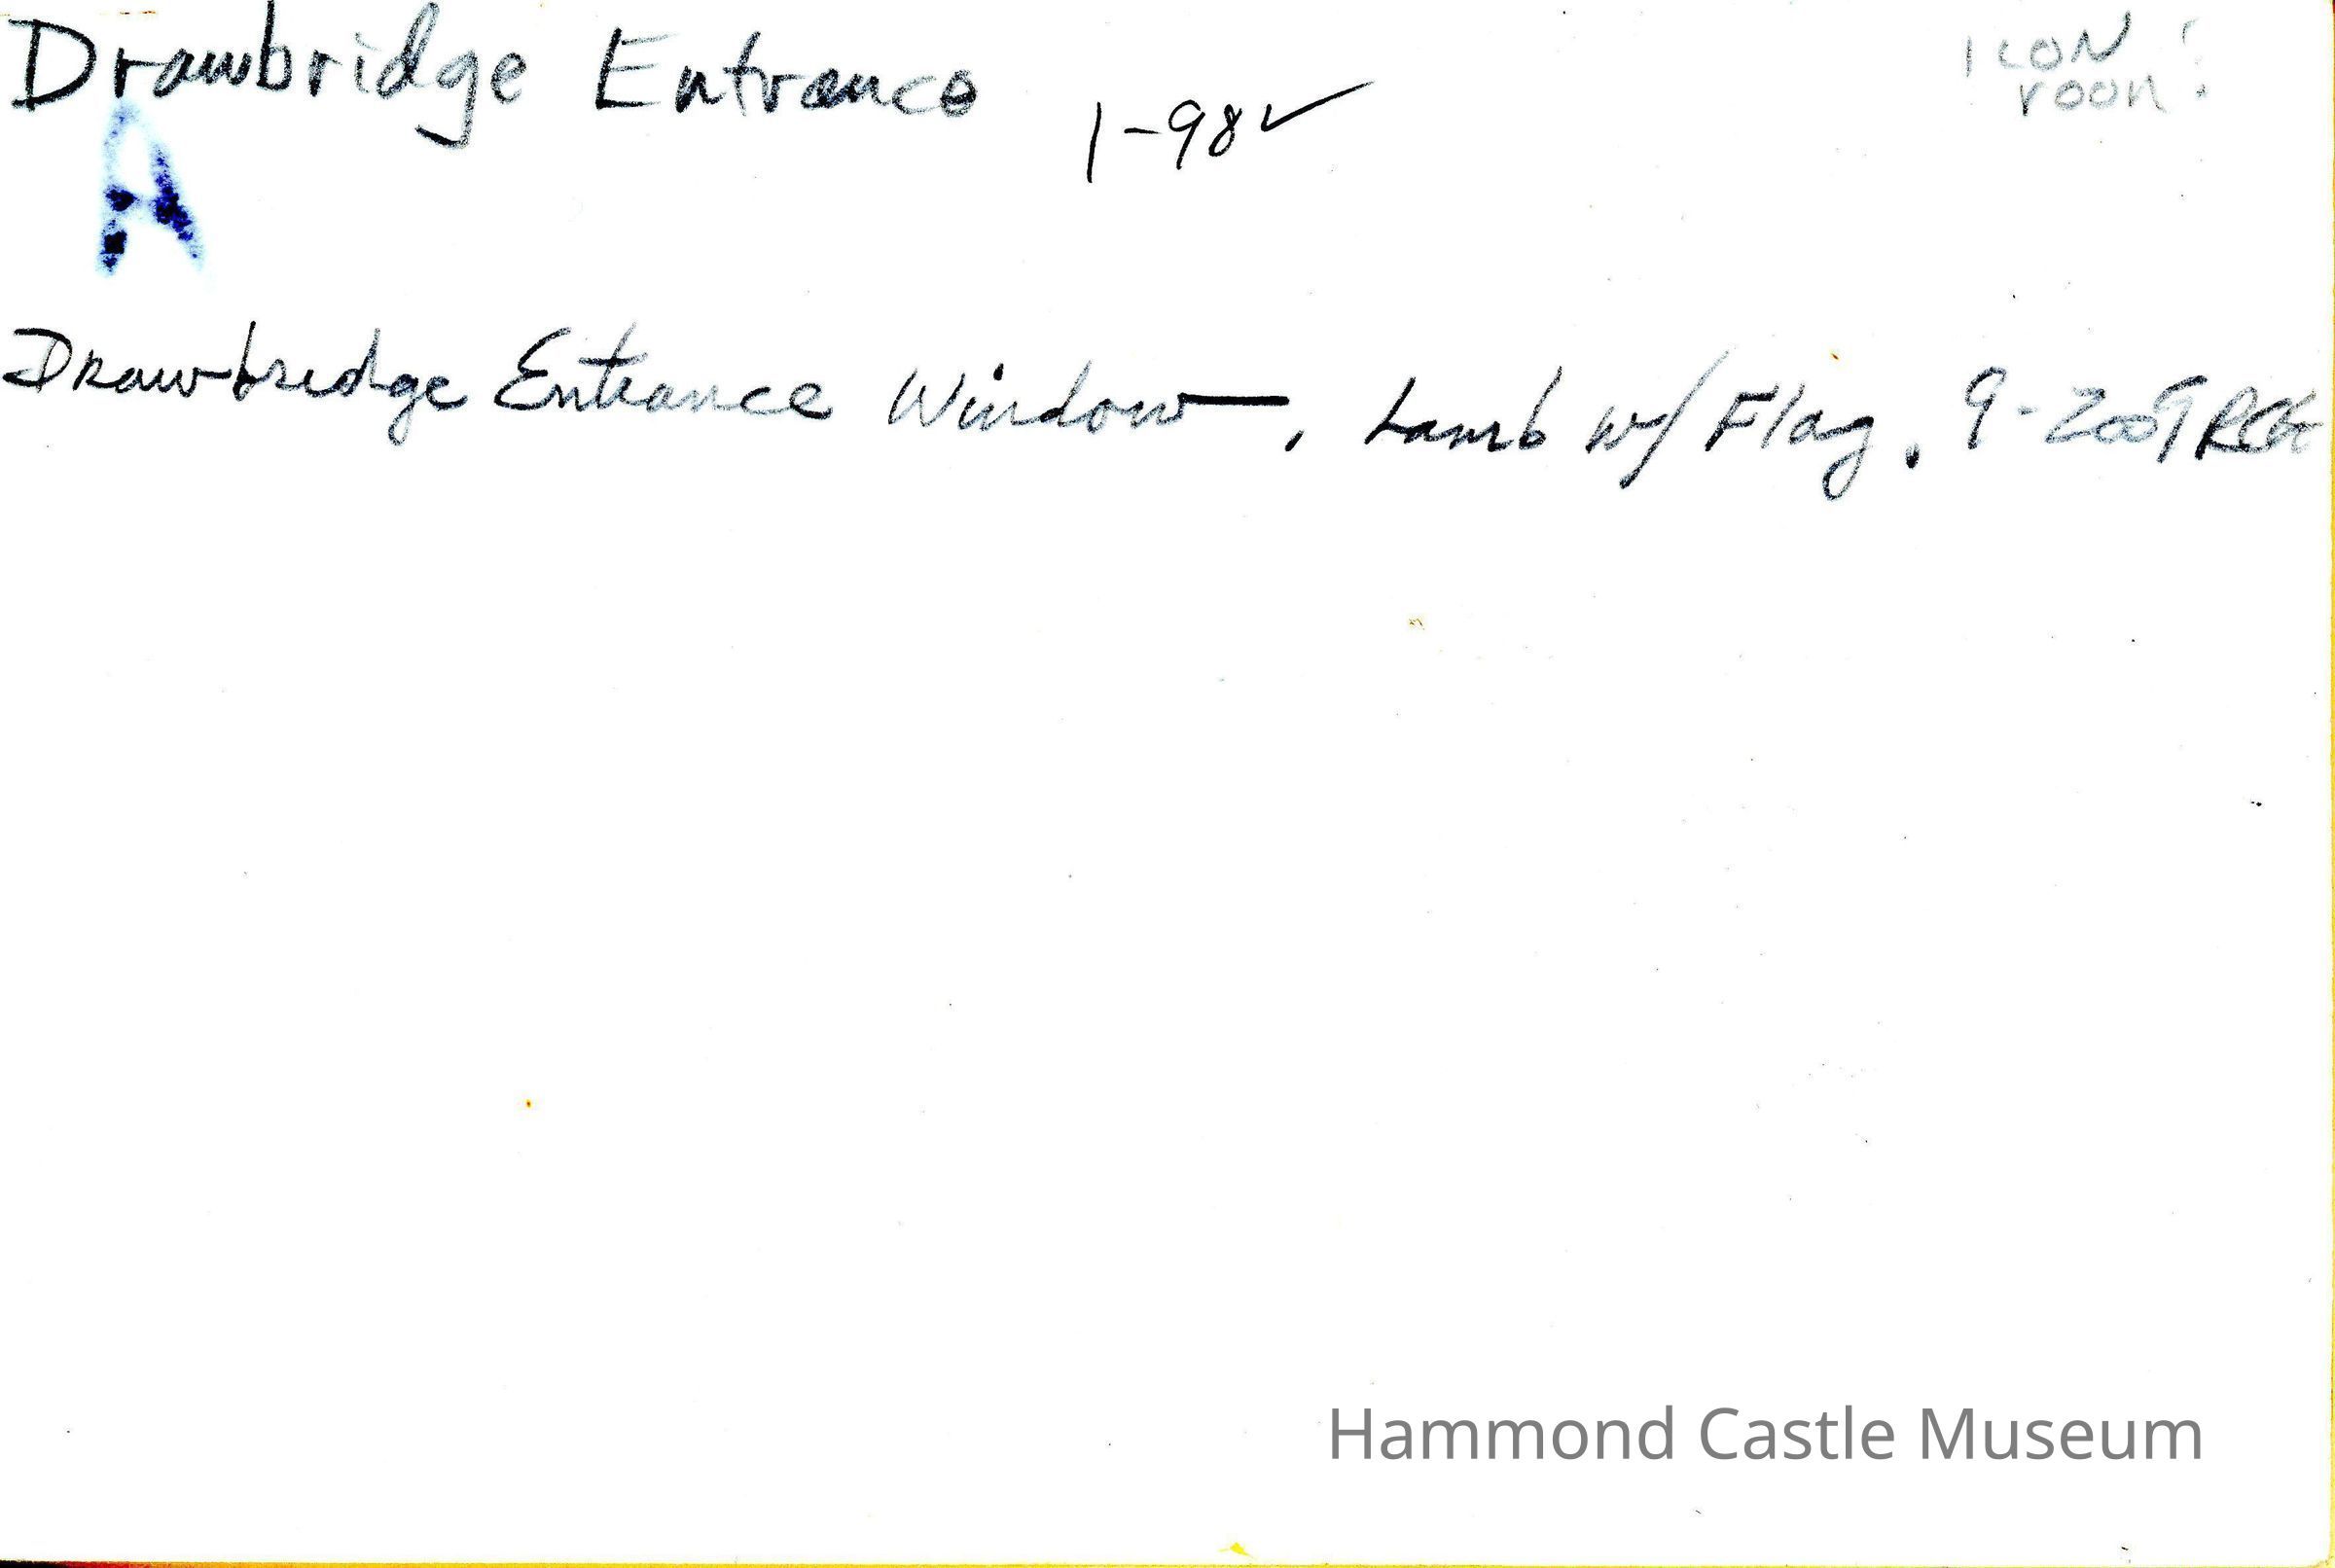 Drawbridge Entrance
1-98✓
ICON
room?
A
Drawbridge Entrance Window, Lamb w/ Flag. 9-2009
Hammond Castle Museum